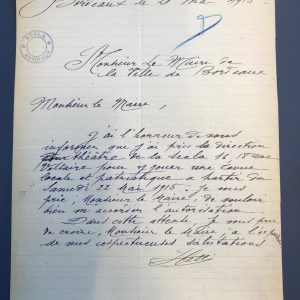 Bordeaux le 20 Mai 1915.
SCALA
BORDEAUX
Monsieur Le Maire de
la Ville de Bordeaux
Monsieur le Maire,
J'ai l'honneur de vous
informer que j'ai pris la direction
théâtre de la Scala 16, 18 rue
Voltaire pour y jouer une
locale et patriotique a partir du
Samedi 22 Mai 1915. Je vous
prie, Monsieur le Maire, de vouloir
bien m'accorder l'autorisation.
Dans cette attente je vous prie
de croire, Monsieur le Maire, à l'
de mes respectueuses salutations